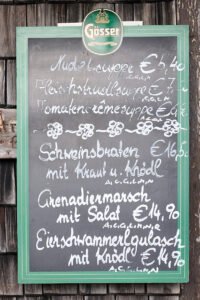 Gösser
Nudelsuppe €5,40
Fleischstrudlsuppe € 7,
Tomatencrêmesuppe €
Schweinsbraten €16,50
mit Kraut u. Knödl
A,C,G,L,M,N
Grenadiermarsch
mit Salat €14,90
Eierschwammerlgulasch
mit Knödl €14,90